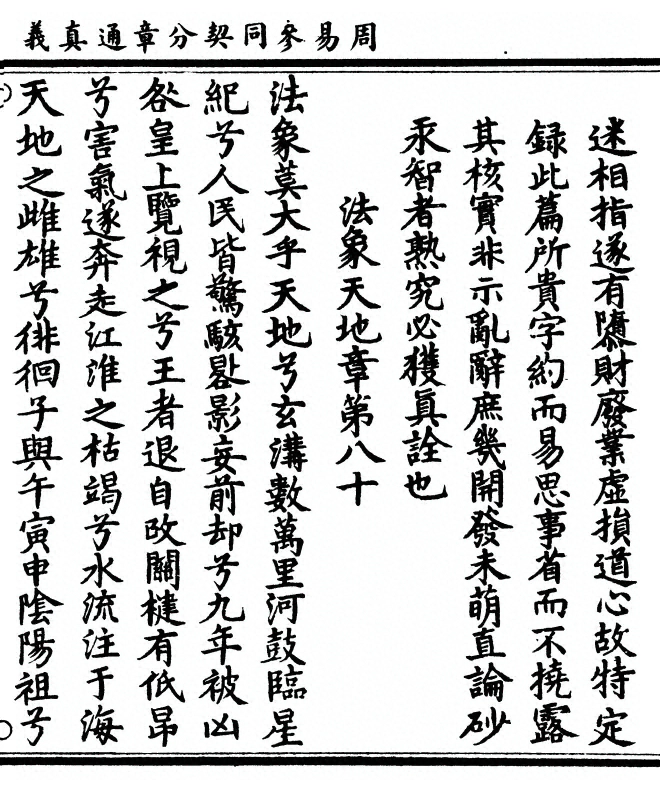 周易參同契分章通真義
迷相指遂有隳財廢業虛損道心故特定
録此篇所貴字約而易思事省而不撓露
其核實非示亂辭庶幾開發未萌直論砂
汞智者熟究必獲真詮也
法象天地章第八十
法象莫大乎天地兮玄溝數萬里河鼓臨星
紀兮人民皆驚駭晷影妄前却兮九年被凶
咎皇上覽視之兮王者退自改關楗有低昂
兮害氣遂奔走江淮之枯竭兮水流注于海
天地之雌雄兮徘徊子與午寅申陰陽祖兮